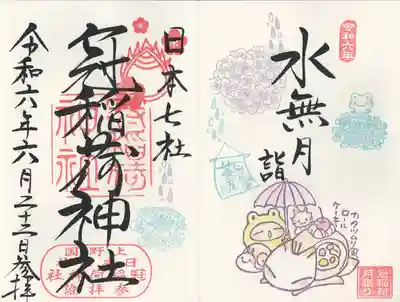 日本七社
冠稲荷神社
令和六年六月二十三日参拝
令和六年
水無月
詣
カタツムリ風
ロール
ケーキ
冠稲荷
月詣り